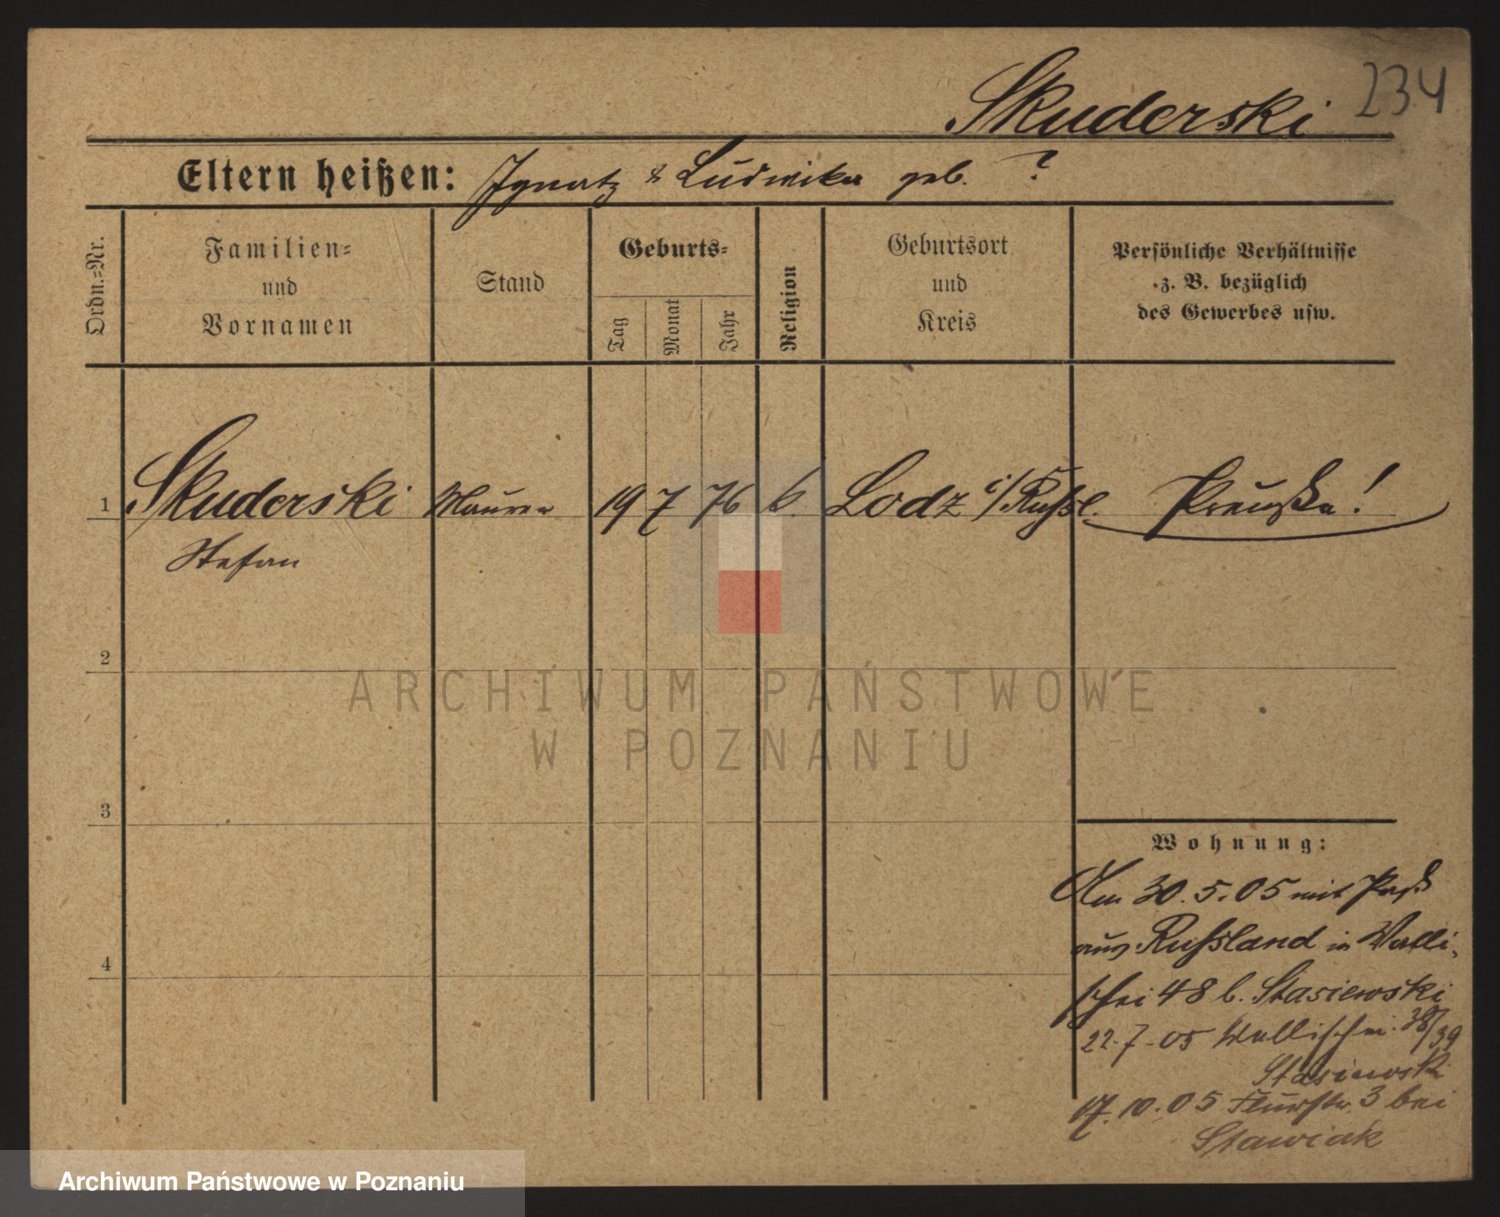 Skuderski 234
Eltern heißen: Ignatz & Ludwika geb. ?
Ordn.=Nr.
Familien=
und
Vornamen
Stand
Geburts=
Tag
Monat
Jahr
Religion
Geburtsort
und
Kreis
Persönliche Verhältnisse
z. B. bezüglich
des Gewerbes usw.
1 Skuderski Maurer 19 7 76 k. Lodz i/Russl. Preusse!
Stefan
2
3
4
Wohnung:
Am 30.5.05 mit Pass
aus Russland in Walli-
schei 48 b. Stasiewski
22.7.05 Wallischei 38/39
Stasiewski
17.10.05 Flurstr. 3 bei
Stawiak
ARCHIWUM PAŃSTWOWE
W POZNANIU
Archiwum Państwowe w Poznaniu